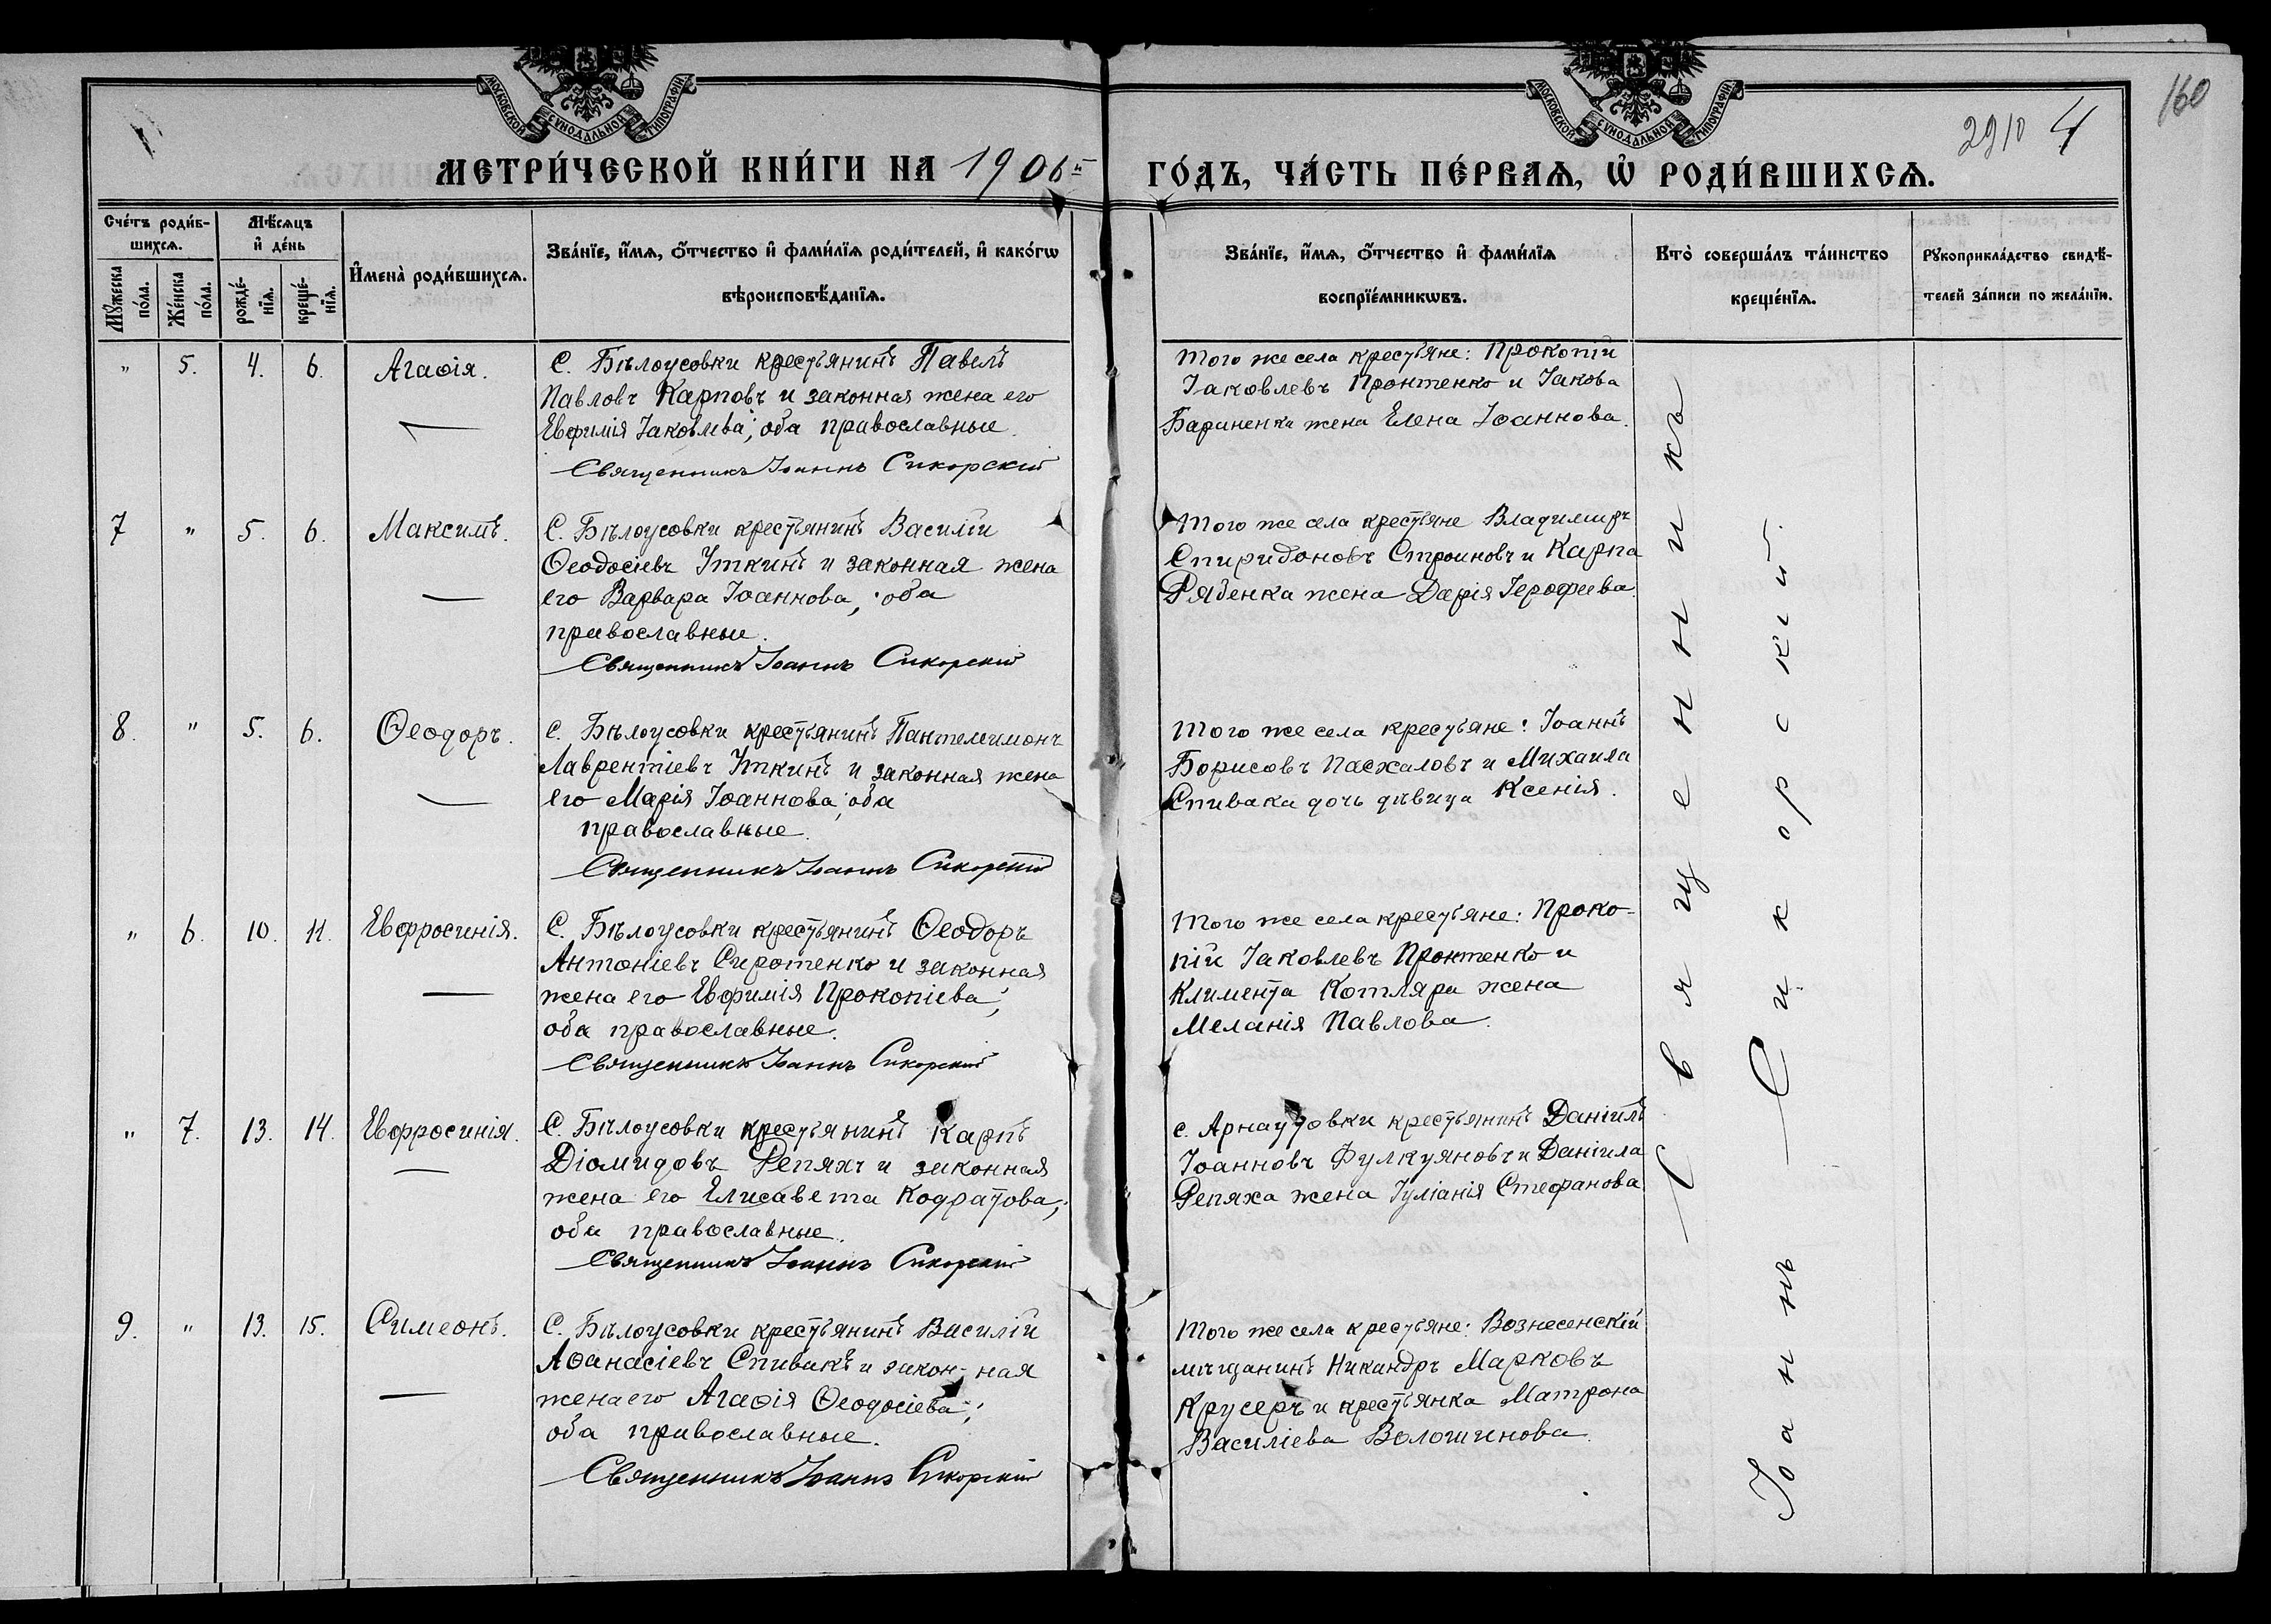 160
2910 4
МОСКОВСКОЙ СУНОДАЛЬНОЙ ТИПОГРАФІИ
МОСКОВСКОЙ СУНОДАЛЬНОЙ ТИПОГРАФІИ
МЕТРИ́ЧЕСКОЙ КНИ́ГИ НА 1906й ГО́ДЪ, ЧА́СТЬ ПЕ́РВАѦ, Ѡ҆ РОДИ́ВШИХСѦ.
Сче́тъ роди́в-
шихсѧ.
Мѣ́сѧцъ
и҆ де́нь
Мꙋ́жеска по́ла.
Же́нска по́ла.
рожде́-нїѧ.
креще́-нїѧ.
И҆мена̀ роди́вшихсѧ.
Зва́нїе, и҆́мѧ, ѻ҆́тчество и҆ фами́лїѧ роди́телей, и҆ како́гѡ
вѣроисповѣ́данїѧ.
Зва́нїе, и҆́мѧ, ѻ҆́тчество и҆ фами́лїѧ
воспрїе́мникѡвъ.
Кто̀ соверша́лъ та́инство
креще́нїѧ.
Рꙋкоприкла́дство свидѣ́-
телей за́писи по жела́нїю.
" 5. 4. 6. Агаѳія.
С. Бѣлоусовки крестьянинъ Павелъ
Павловъ Карповъ и законная жена его
Евфимія Іаковлева; оба православные.
Священникъ Іоаннъ Сикорскій
Того же села крестьяне: Прокопій
Іаковлевъ Пронтенко и Іакова
Бариненка жена Елена Іоаннова.
7 " 5. 6. Максимъ.
С. Бѣлоусовки крестьянинъ Василій
Ѳеодосіевъ Уткинъ и законная жена
его Варвара Іоаннова, оба
православные.
Священникъ Іоаннъ Сикорскій
Того же села крестьяне Владимиръ
Спиридоновъ Строиновъ и Карпа
Рябенка жена Дарія Іерофеева.
8. " 5. 6. Ѳеодоръ.
С. Бѣлоусовки крестьянинъ Пантелеимонъ
Лаврентіевъ Уткинъ и законная жена
его Марія Іоаннова; оба
православные.
Священникъ Іоаннъ Сикорскій
Того же села крестьяне: Іоаннъ
Борисовъ Пасхаловъ и Михаила
Спивака дочь дѣвица Ксенія.
" 6. 10. 11. Евфросинія.
С. Бѣлоусовки крестьянинъ Ѳеодоръ
Антоніевъ Сиротенко и законная
жена его Евфимія Прокопіева;
оба православные.
Священникъ Іоаннъ Сикорскій
Того же села крестьяне: Проко-
пій Іаковлевъ Пронтенко и
Климента Котляра жена
Меланія Павлова.
" 7. 13. 14. Евфросинія.
С. Бѣлоусовки крестьянинъ Карпъ
Діомидовъ Репяхъ и законная
жена его Елисавета Кодратова;
оба православные.
Священникъ Іоаннъ Сикорскій
с. Арнаутовки крестьянинъ Даніилъ
Іоанновъ Фулкуяновъ и Даніила
Репяха жена Іуліанія Стефанова
9. " 13. 15. Симеонъ.
С. Бѣлоусовки крестьянинъ Василій
Аѳанасіевъ Спивакъ и закон-ная
жена его Агаѳія Ѳеодосіева;
оба православные.
Священникъ Іоаннъ Сикорскій
Того же села крестьяне: Вознесенскій
мѣщанинъ Никандръ Марковъ
Крусеръ и крестьянка Матрона
Василіева Волошинова.
Священникъ
Іоаннъ Сикорскій.